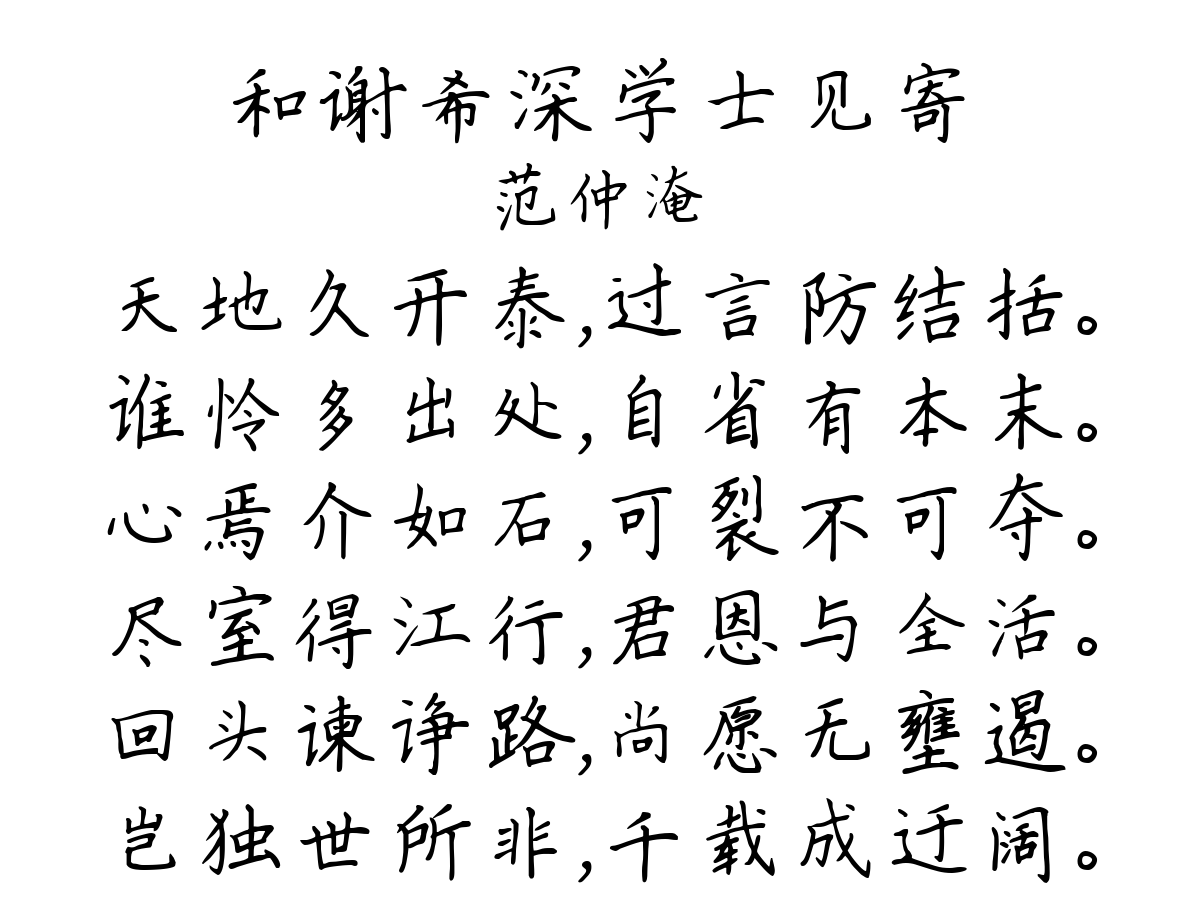 和谢希深学士见寄
范仲淹
天地久开泰,过言防结括。
谁怜多出处,自省有本末。
心焉介如石,可裂不可夺。
尽室得江行,君恩与全活。
回头谏诤路,尚愿无壅遏。
岂独世所非,千载成迂阔。